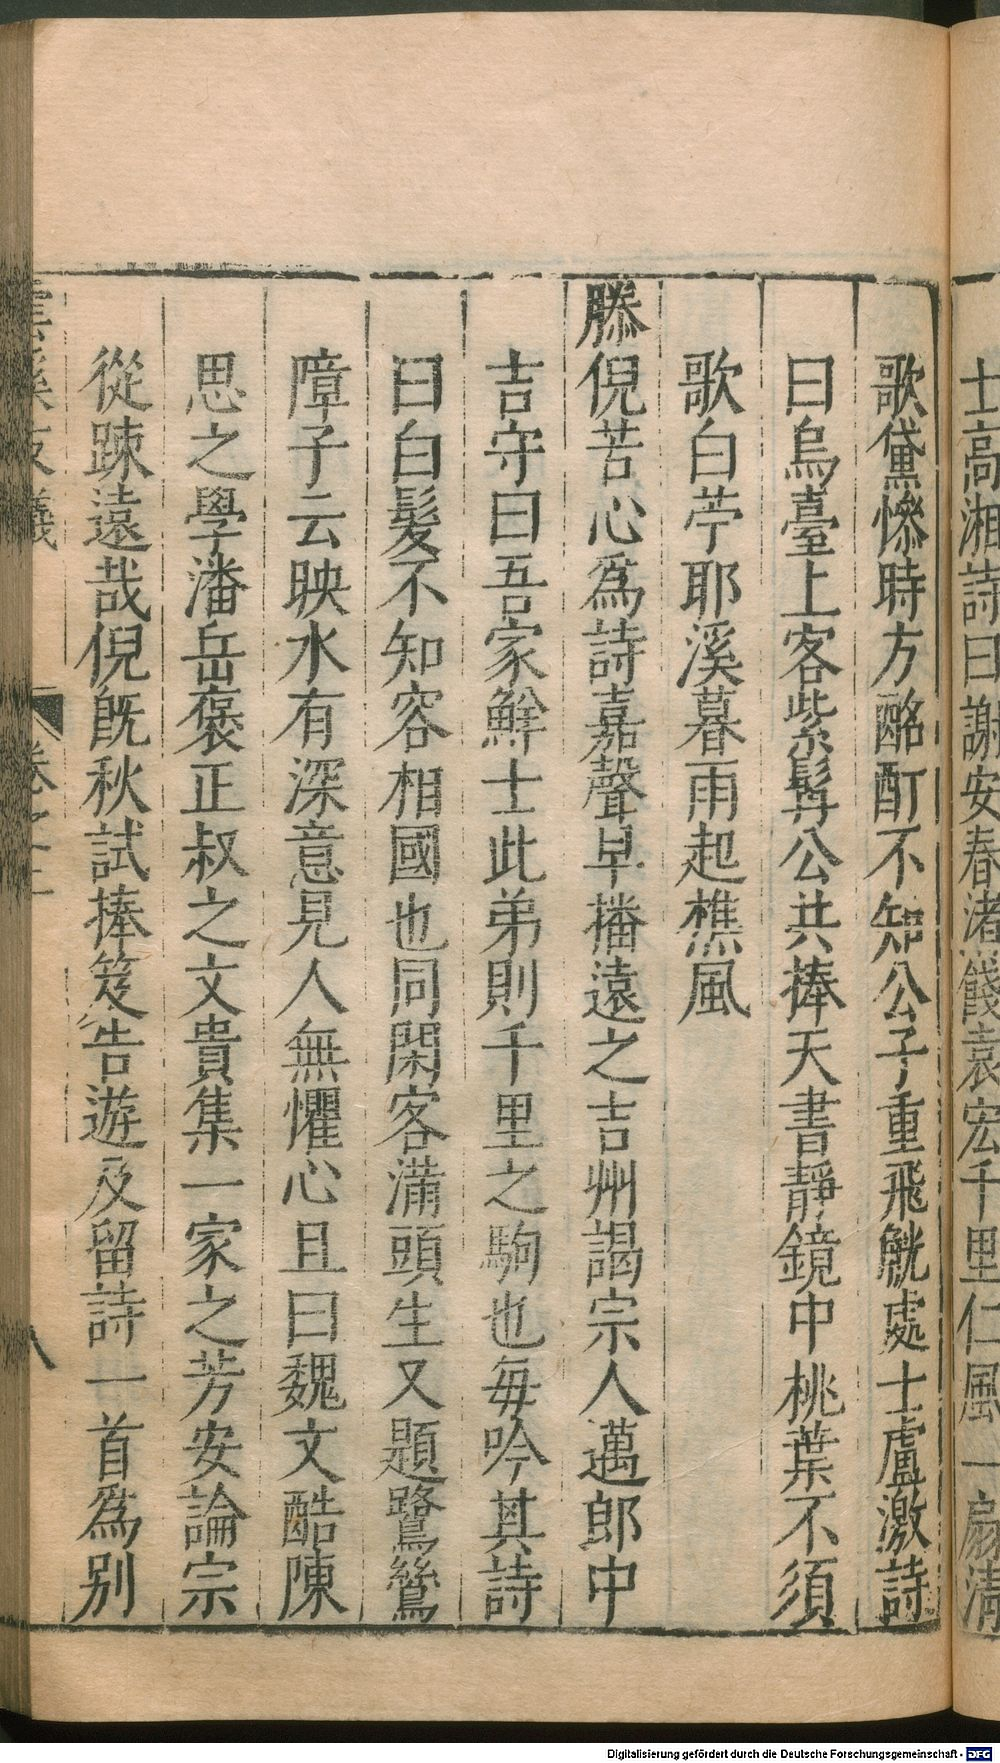 士高湘詩曰謝安春渚餞袁宏千里仁風一扇淸
歌黛慘時方酩酊不知公子重飛觥處士盧激詩
曰烏臺上客紫髯公共捧天書靜鏡中桃葉不須
歌白苧耶溪暮雨起樵風
滕倪苦心爲詩嘉聲早播遠之吉州謁宗人邁郎中
吉守曰吾家鮮士此弟則千里之駒也每吟其詩
曰白髮不知容相國也同閑客滿頭生又題鷺鷥
障子云映水有深意見人無懼心且曰魏文酷陳
思之學潘岳褒正叔之文貴集一家之芳安論宗
從踈遠哉倪旣秋試捧笈告遊及留詩一首爲別
雲溪友議
卷之
八
Digitalisierung gefördert durch die Deutsche Forschungsgemeinschaft - DFG